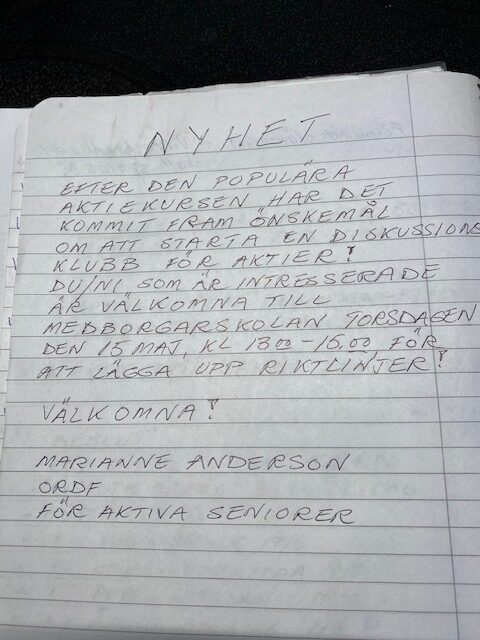 NYHET
EFTER DEN POPULÄRA
AKTIEKURSEN HAR DET
KOMMIT FRAM ÖNSKEMÅL
OM ATT STARTA EN DISKUSSIONS
KLUBB FÖR AKTIER!
DU/NI SOM ÄR INTRESSERADE
ÄR VÄLKOMNA TILL
MEDBORGARSKOLAN TORSDAGEN
DEN 15 MAJ, KL 13.00-15.00 FÖR
ATT LÄGGA UPP RIKTLINJER!
VÄLKOMNA!
MARIANNE ANDERSON
ORDF
FÖR AKTIVA SENIORER